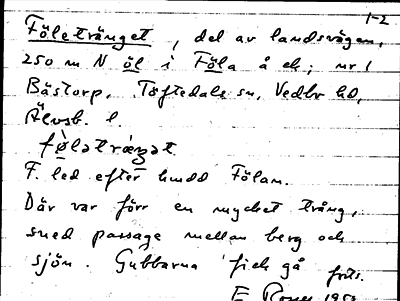 1-2
Föletränget, del av landsvägen,
250 m N öl i Föla å ek; nr 1
Bästorp, Töftedals sn, Vedbo hd,
Älvsb. l.
fø̀lətræŋət.
F. led efter hudd Fölan.
Där var förr en mycket trång,
sned passage mellan berg och
sjön. Gubbarna fick gå förs.
E